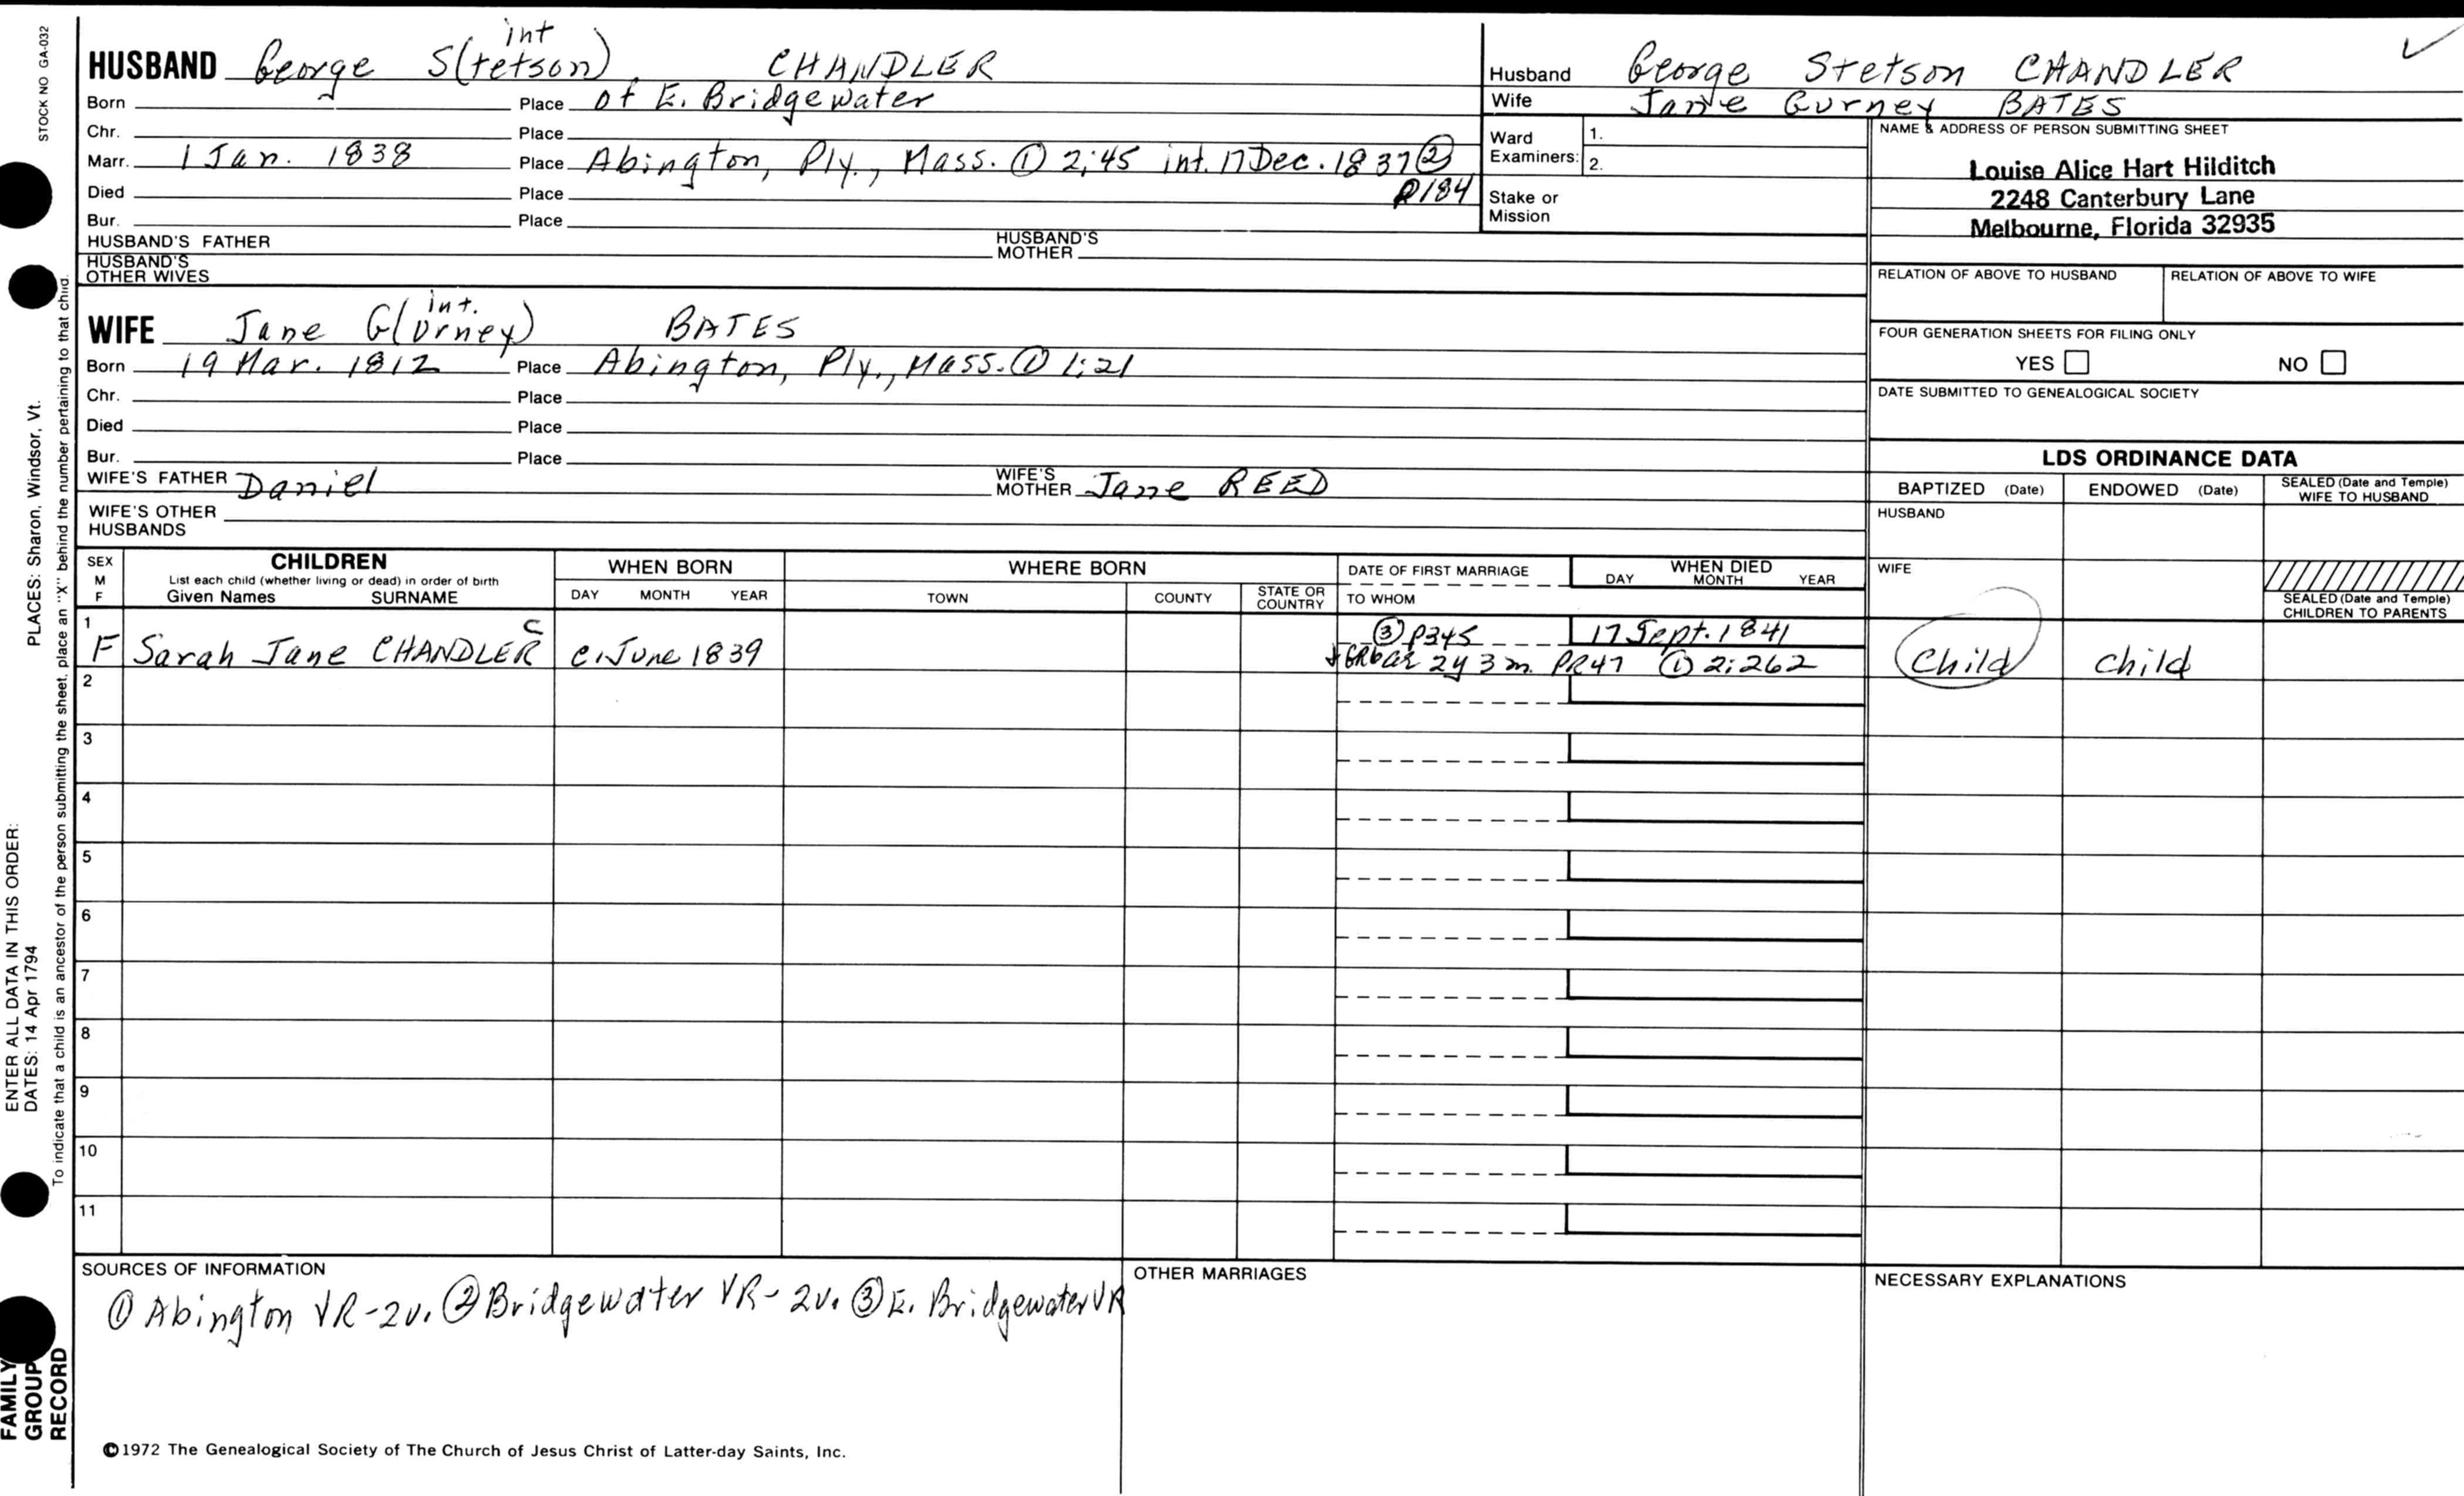 STOCK NO GA-032
PLACES: Sharon, Windsor, Vt.
ENTER ALL DATA IN THIS ORDER:
DATES: 14 Apr 1794
To indicate that a child is an ancestor of the person submitting the sheet, place an "X" behind the number pertaining to that child.
FAMILY
GROUP
RECORD
int
HUSBAND George S(tetson) CHANDLER
Born Place of E. Bridgewater
Chr. Place
Marr. 1 Jan. 1838 Place Abington, Ply., Mass. ① 2:45 int. 17 Dec. 1837 ②
Died Place P184
Bur. Place
HUSBAND'S FATHER HUSBAND'S MOTHER
HUSBAND'S OTHER WIVES
int.
WIFE Jane G(urney) BATES
Born 19 Mar. 1812 Place Abington, Ply., Mass. ① 1:21
Chr. Place
Died Place
Bur. Place
WIFE'S FATHER Daniel WIFE'S MOTHER Jane REED
WIFE'S OTHER HUSBANDS
Husband George Stetson CHANDLER
Wife Jane Gurney BATES
Ward Examiners: 1.
2.
Stake or Mission
NAME & ADDRESS OF PERSON SUBMITTING SHEET
Louise Alice Hart Hilditch
2248 Canterbury Lane
Melbourne, Florida 32935
RELATION OF ABOVE TO HUSBAND RELATION OF ABOVE TO WIFE
FOUR GENERATION SHEETS FOR FILING ONLY
YES NO
DATE SUBMITTED TO GENEALOGICAL SOCIETY
LDS ORDINANCE DATA
BAPTIZED (Date) ENDOWED (Date) SEALED (Date and Temple) WIFE TO HUSBAND
HUSBAND
WIFE
SEALED (Date and Temple) CHILDREN TO PARENTS
SEX M F CHILDREN WHEN BORN WHERE BORN DATE OF FIRST MARRIAGE WHEN DIED
List each child (whether living or dead) in order of birth
Given Names SURNAME DAY MONTH YEAR TOWN COUNTY STATE OR COUNTRY TO WHOM DAY MONTH YEAR
1 c ③ P345 17 Sept. 1841
F Sarah Jane CHANDLER c. June 1839 2y 3m. PR47 ① 2:262 Child child
2
3
4
5
6
7
8
9
10
11
SOURCES OF INFORMATION
① Abington VR-2v. ② Bridgewater VR-2v. ③ E. Bridgewater VR
OTHER MARRIAGES
NECESSARY EXPLANATIONS
©1972 The Genealogical Society of The Church of Jesus Christ of Latter-day Saints, Inc.